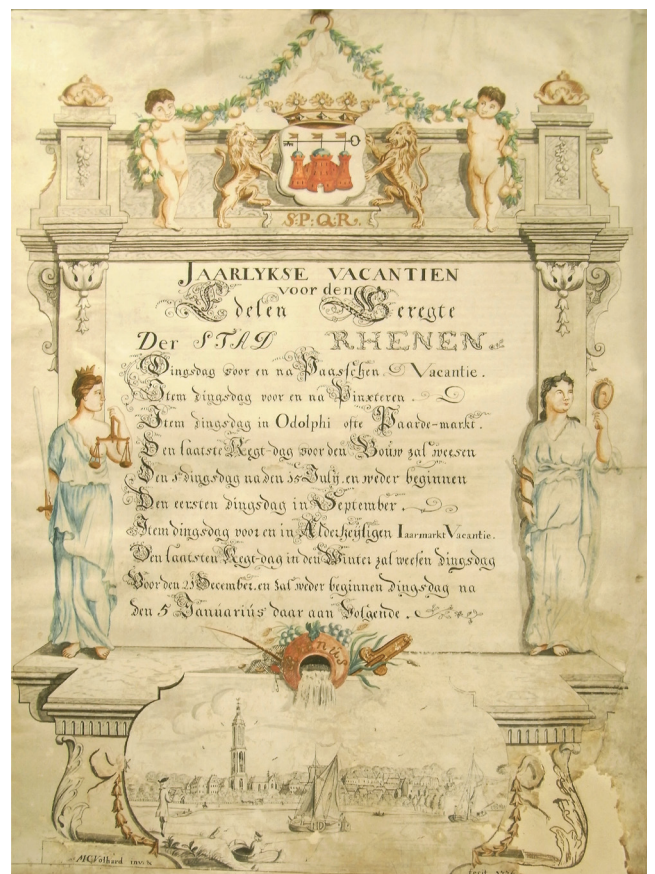 S:P:Q:R.
JAARLYKSE VACANTIEN
voor den
Edelen Geregte
Der STAD RHENEN
Dingsdag voor en na Paasschen. Vacantie.
Item dingsdag voor en na Pinxteren.
Item dingsdag in Odolphi ofte Paarde-markt.
Den laatste Regt-dag voor den Bouw zal weesen
Den dingsdag na den July. en weder beginnen
Den eersten dingsdag in September.
Item dingsdag voor en in Alderheyligen Iaarmarkt Vacantie.
Den laatsten Regt-dag in den Winter zal weesen dingsdag
Voor den December. en zal weder beginnen Dingsdag na
den 5 Januariús daar aan Volgende.